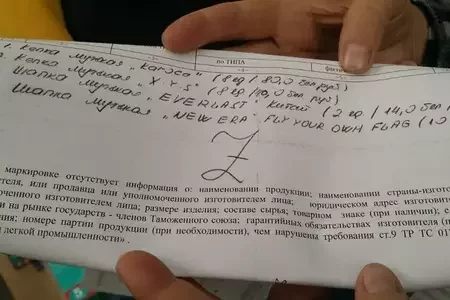 по ТНПА
1. Кепка мужская „Kapusa" (8 ед / 80,0 бел руб)
Кепка мужская „X·Y·S" (8 ед / 90,0 бел. руб)
Шапка мужская „EVERLAST" Китай (2 ед / 14,0 бел
Шапка мужская „NEW ERA" FLY YOUR OWN FLAG (10
Z
маркировке отсутствует информация о: наименовании продукции; наименовании страны-изгото
теля, или продавца или уполномоченного изготовителем лица; юридическом адрес изготовите
оченного изготовителем лица; размере изделия; составе сырья; товарном знаке (при наличии), е
и на рынке государств - членов Таможенного союза; гарантийных обязательствах изготовителя (п
ния; номере партии продукции (при необходимости), чем нарушены требования ст.9 ТР ТС 017
и легкой промышленности» .